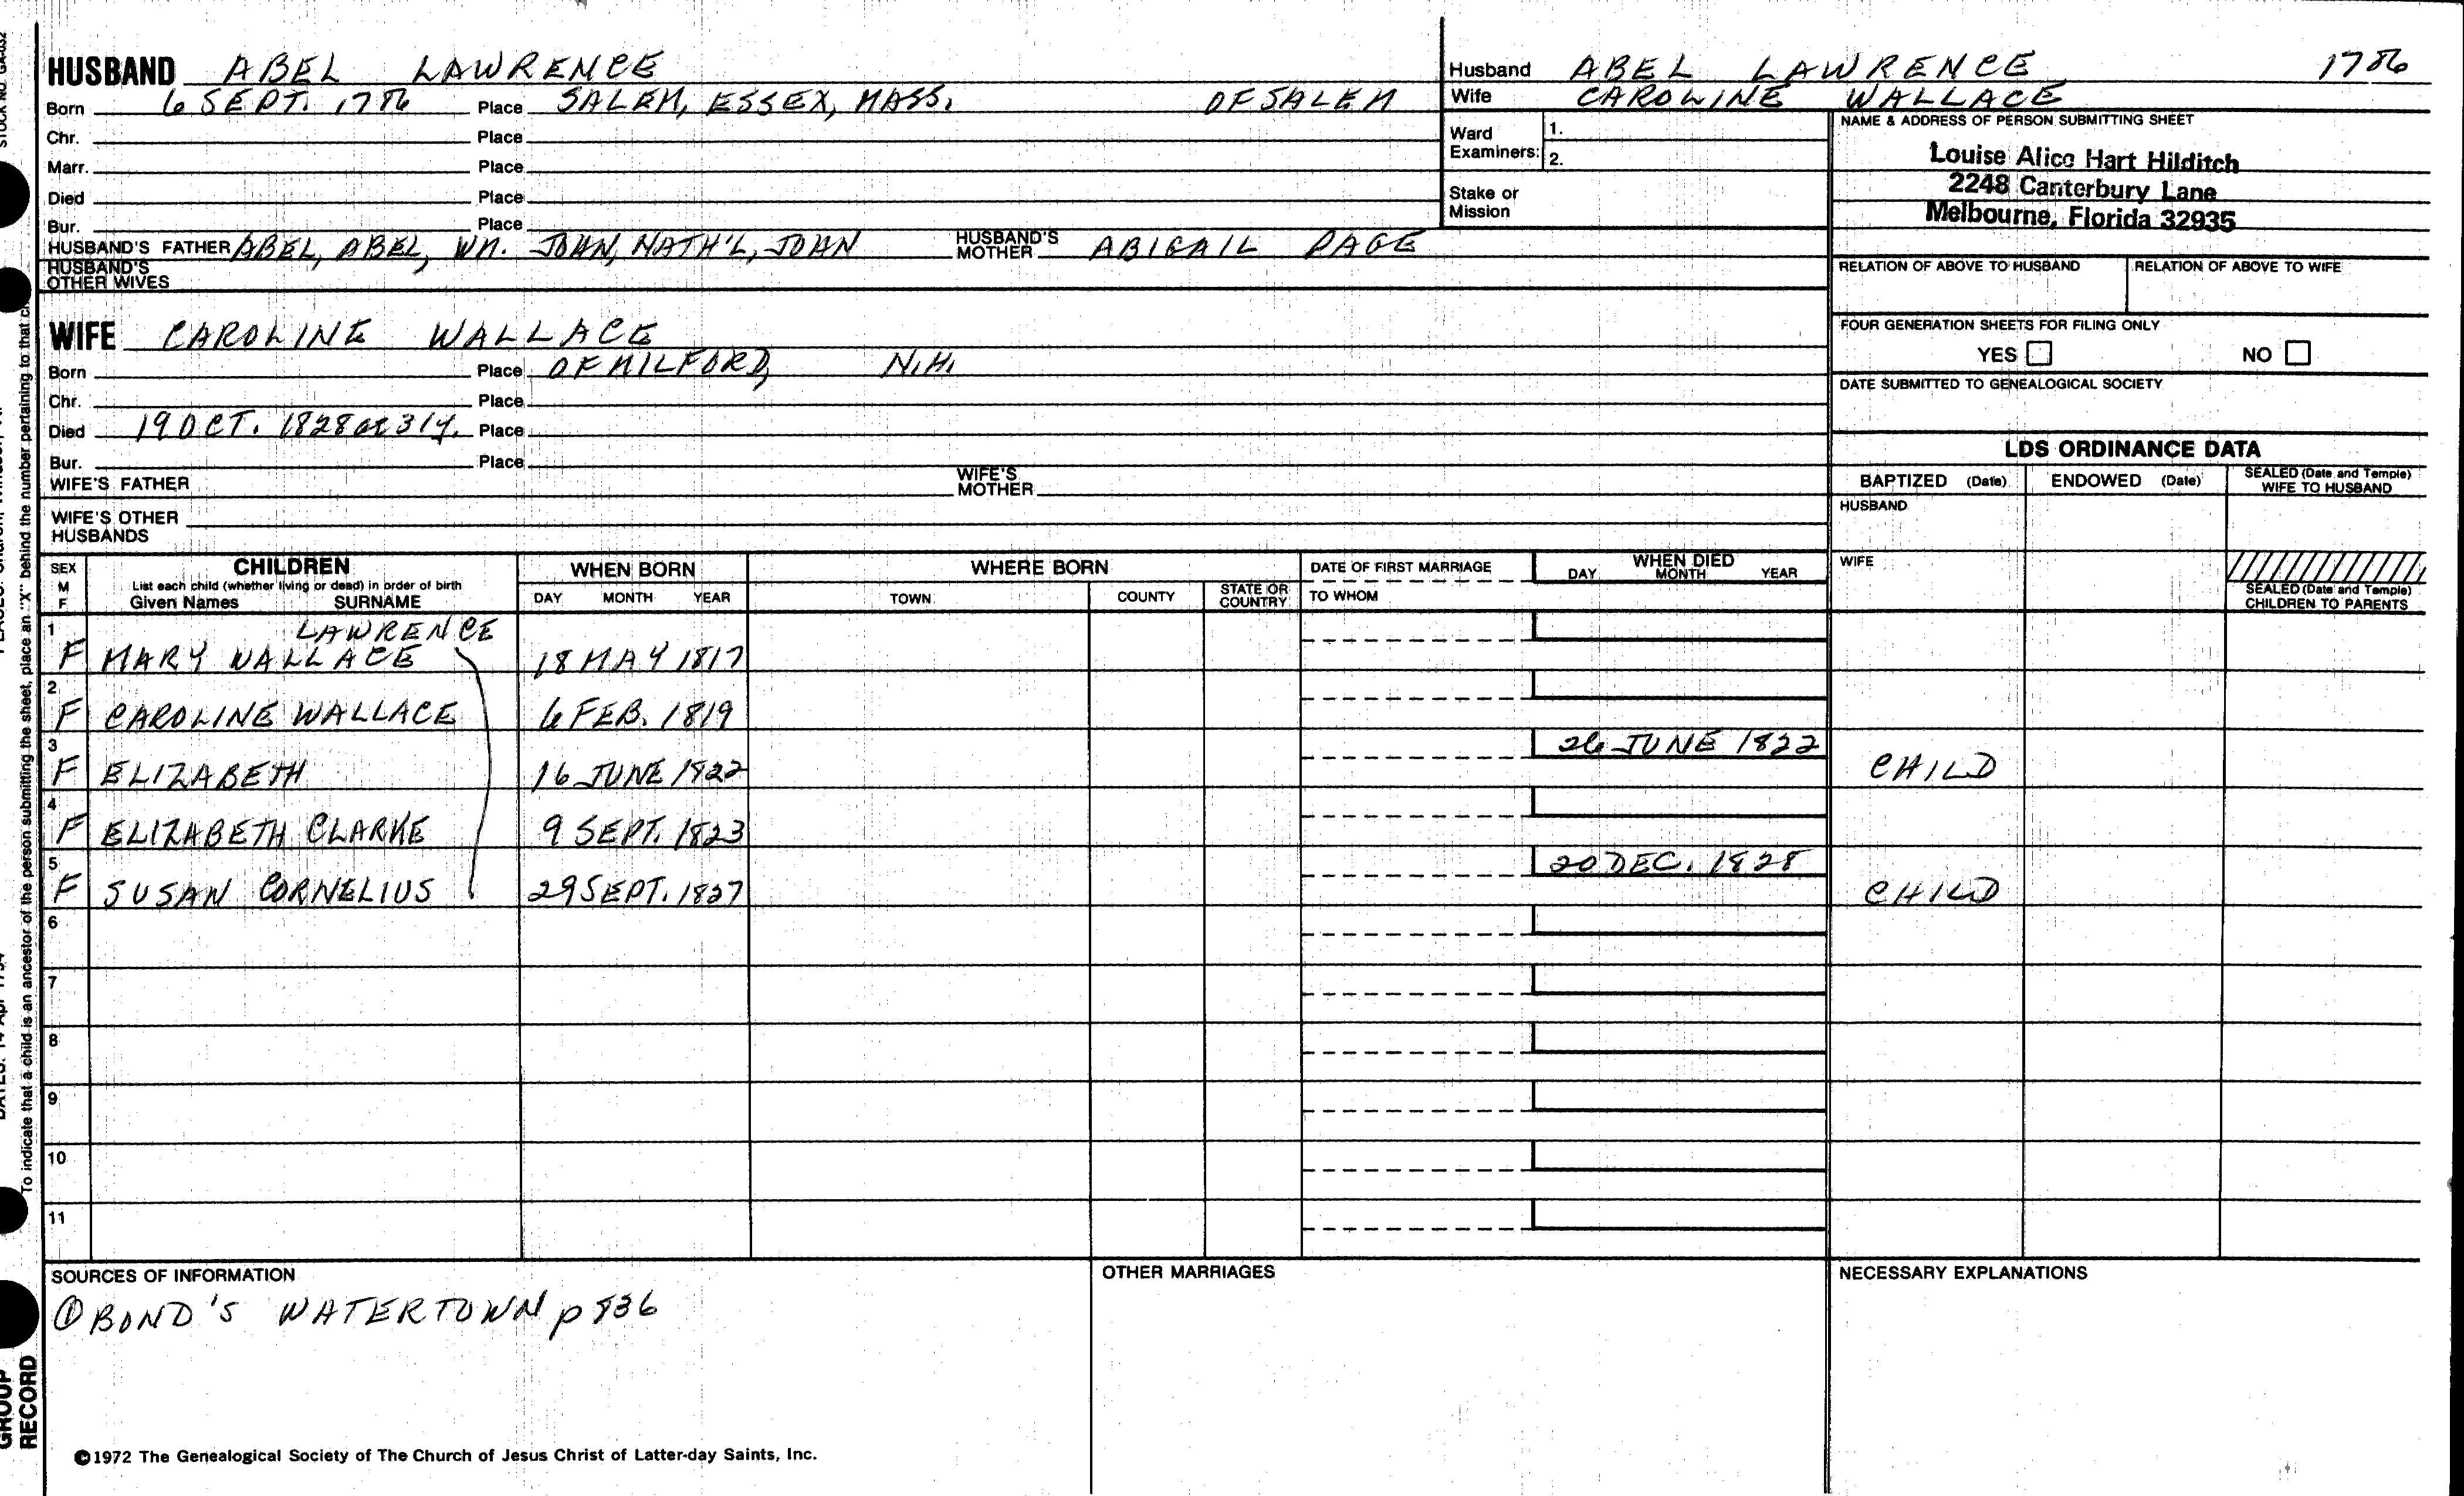 STOCK NO. GA-032
HUSBAND ABEL LAWRENCE
Born 6 SEPT. 1786 Place SALEM, ESSEX, MASS. OF SALEM
Chr. Place
Marr. Place
Died Place
Bur. Place
HUSBAND'S FATHER ABEL, ABEL, WM. JOHN, NATH'L, JOHN HUSBAND'S MOTHER ABIGAIL PAGE
HUSBAND'S OTHER WIVES
Husband ABEL LAWRENCE 1786
Wife CAROLINE WALLACE
Ward Examiners: 1.
2.
Stake or Mission
NAME & ADDRESS OF PERSON SUBMITTING SHEET
Louise Alice Hart Hilditch
2248 Canterbury Lane
Melbourne, Florida 32935
RELATION OF ABOVE TO HUSBAND RELATION OF ABOVE TO WIFE
FOUR GENERATION SHEETS FOR FILING ONLY
YES NO
DATE SUBMITTED TO GENEALOGICAL SOCIETY
WIFE CAROLINE WALLACE
Born Place OF MILFORD, N.H.
Chr. Place
Died 19 OCT. 1828 ae 31y. Place
Bur. Place
WIFE'S FATHER WIFE'S MOTHER
WIFE'S OTHER HUSBANDS
LDS ORDINANCE DATA
BAPTIZED (Date) ENDOWED (Date) SEALED (Date and Temple) WIFE TO HUSBAND
HUSBAND
WIFE
SEALED (Date and Temple) CHILDREN TO PARENTS
SEX M F
CHILDREN
List each child (whether living or dead) in order of birth
Given Names SURNAME
WHEN BORN
DAY MONTH YEAR
WHERE BORN
TOWN COUNTY STATE OR COUNTRY
DATE OF FIRST MARRIAGE
TO WHOM
WHEN DIED
DAY MONTH YEAR
1 LAWRENCE
F MARY WALLACE 18 MAY 1817
2
F CAROLINE WALLACE 6 FEB. 1819
3 26 JUNE 1822
F ELIZABETH 16 JUNE 1822 CHILD
4
F ELIZABETH CLARKE 9 SEPT. 1823
5 20 DEC. 1828
F SUSAN CORNELIUS 29 SEPT. 1827 CHILD
6
7
8
9
10
11
SOURCES OF INFORMATION
① BOND'S WATERTOWN p 836
OTHER MARRIAGES
NECESSARY EXPLANATIONS
©1972 The Genealogical Society of The Church of Jesus Christ of Latter-day Saints, Inc.
To indicate that a child is an ancestor of the person submitting the sheet, place an "X" behind the number pertaining to that
GROUP
RECORD